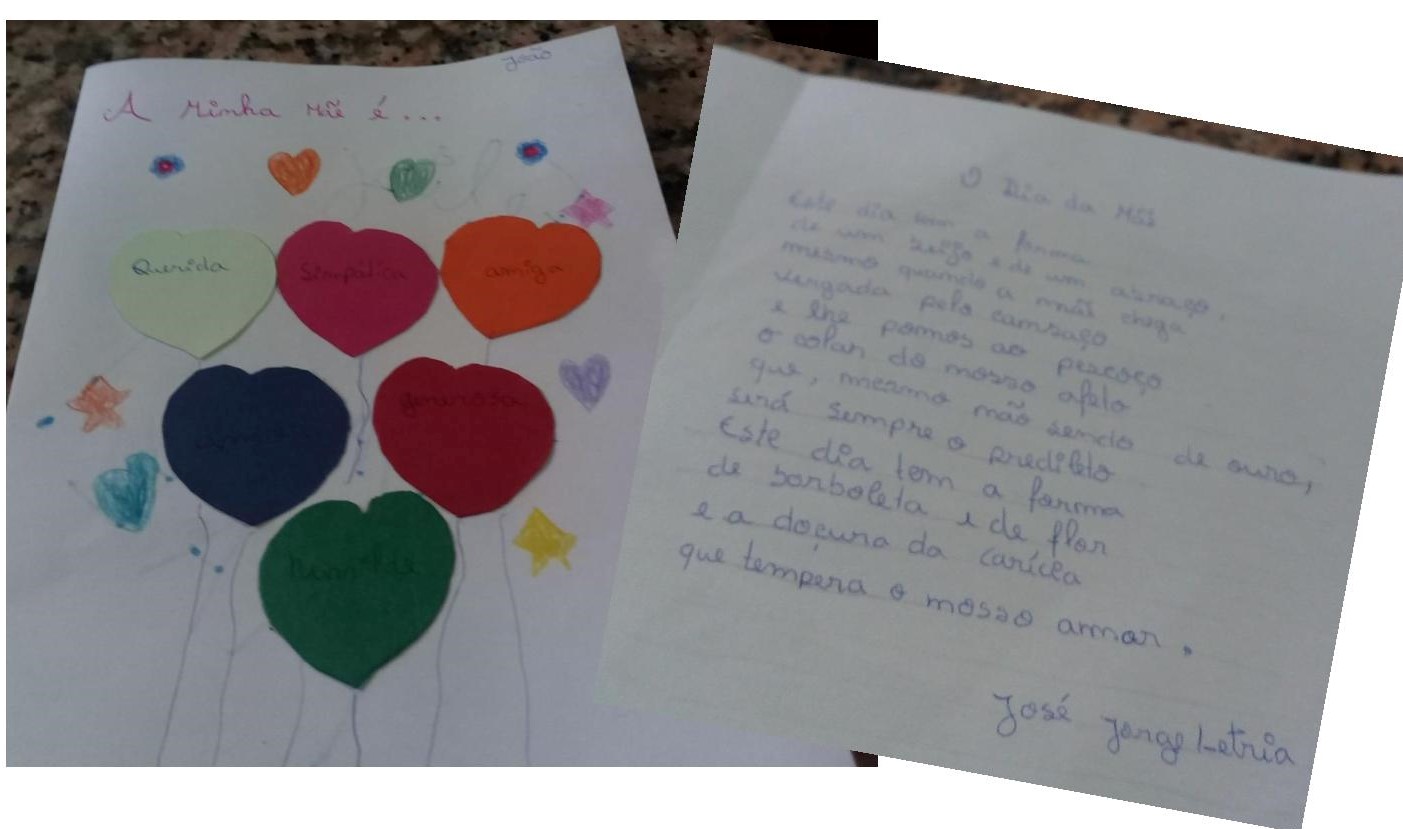 João
A Minha Mãe é...
Querida
Simpática
amiga
generosa
O Dia da Mãe
Este dia tem a forma
de um beijo e de um abraço,
mesmo quando a mãe chega
vergada pelo cansaço
e lhe pomos ao pescoço
o colar do nosso afeto
que, mesmo não sendo de ouro,
será sempre o predileto
Este dia tem a forma
de borboleta e de flor
e a doçura da carícia
que tempera o nosso amor.
José Jorge Letria